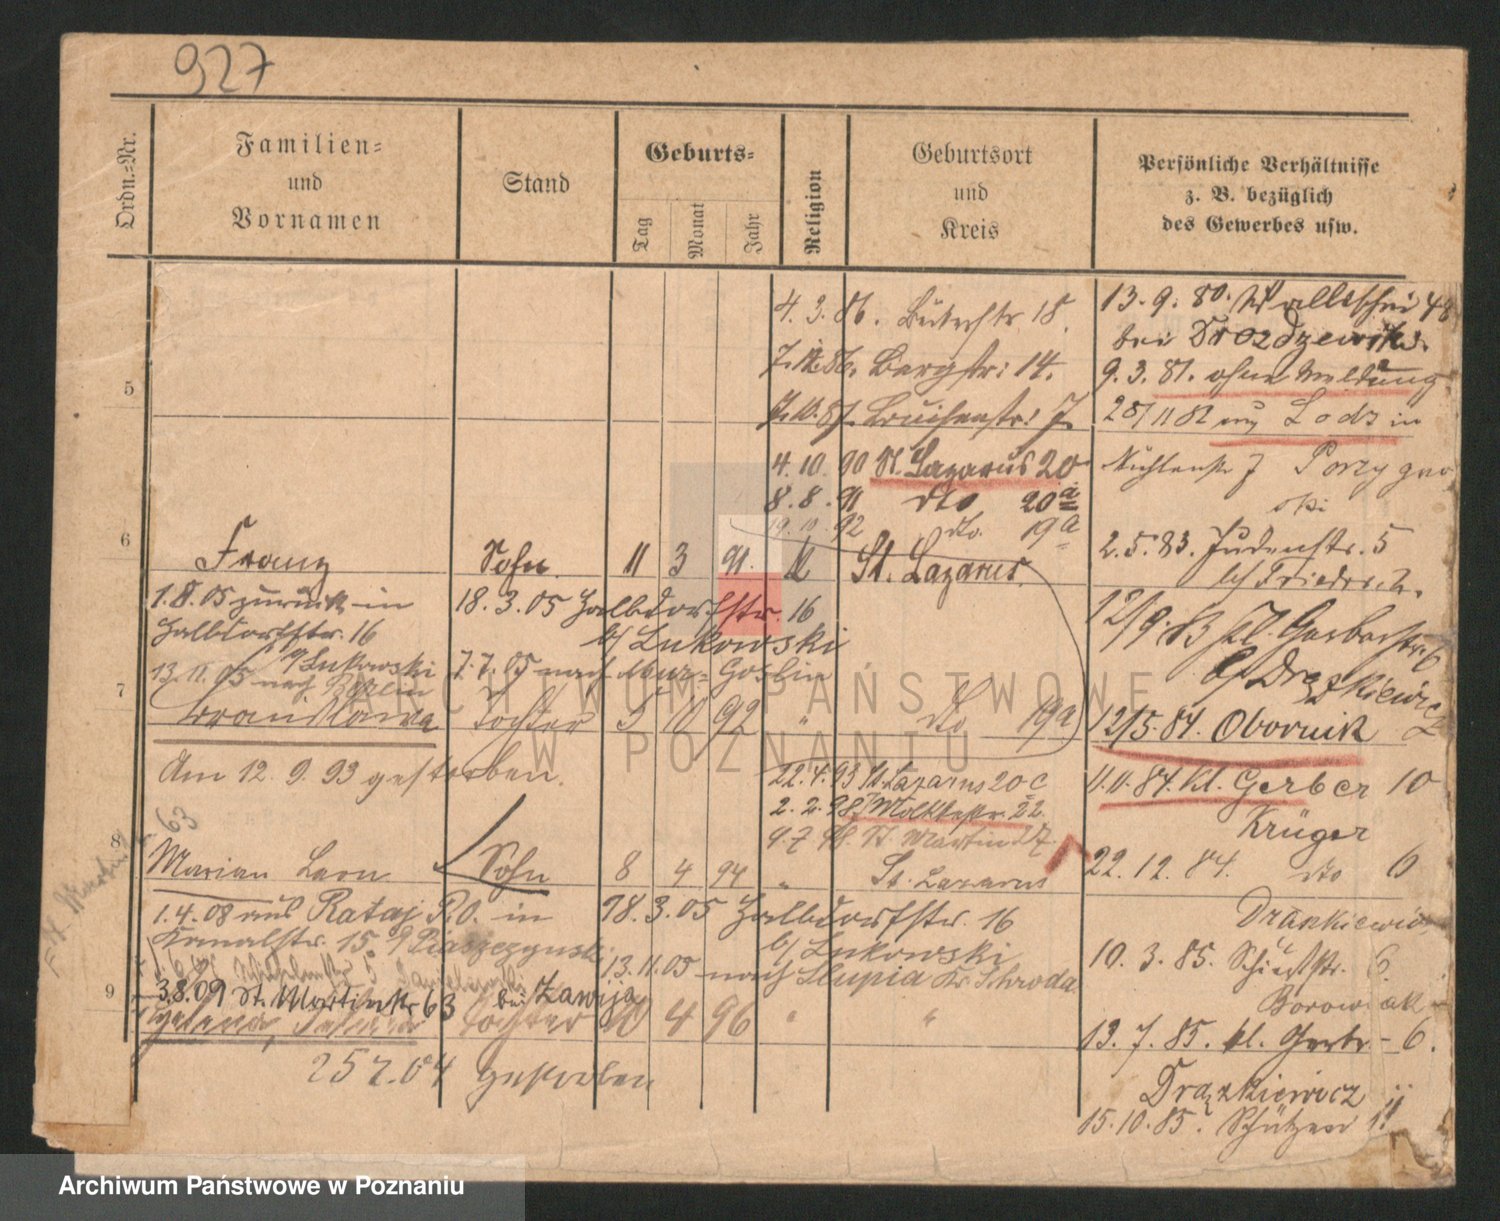 927
Ordn.-Nr.
Familien-
und
Vornamen
Stand
Geburts-
Tag
Monat
Jahr
Religion
Geburtsort
und
Kreis
Persönliche Verhältnisse
z. B. bezüglich
des Gewerbes usw.
4. 3. 86. Büttelstr. 18.
13. 9. 80. Wallischei 48
bei Drozdzewski.
7. 12. 86. Bergstr: 14.
9. 3. 81. ohne Meldung.
5
7. 10. 87. Louisenstr: 7
28/11 82 Lodz in
4. 10. 90 St. Lazarus 20
Mühlenstr 7
8. 8. 91 dto 20a
19. 10. 92 dto. 19a
2. 5. 83. Judenstr. 5
b/ Friedrich.
6
Franz Sohn. 11 3 91. k St. Lazarus.
1. 8. 05 zurück in
Halbdorfstr. 16
b/ Lukowski
13. 11. 05 nach Berlin
18. 3. 05 Halbdorfstr. 16
b/ Lukowski
7. 7. 05 nach Mur-Goslin
12/9. 83 kl. Gerberstr. 6
b/ Drazkiewicz
7
Bronislawa Tochter 5 10 92 " dto 19a
12/5. 84. Obornik
Am 12. 9. 93 gestorben.
22. 4. 93 St. Lazarus 20 c
2. 2. 98. Moltkestr. 22
9. 7. 98. St. Martin 27
11. 11. 84. kl. Gerber 10
Krüger
63
8
Marian Leon Sohn 8 4 94 " St. Lazarus
22. 12. 84. dto 6
Drazkiewicz
1. 4. 08 aus Rataj P. O. in
Kanalstr. 15
18. 3. 05 Halbdorfstr. 16
b/ Lukowski
13. 11. 05 nach Slupia Kr. Schroda
10. 3. 85. Schießstr. 6.
Borowiak
9
3. 8. 09 St. Martinstr 63 bei Zawija
Helena Tochter 4 96 " "
13. 7. 85. kl. Gerbr. - 6.
25 7. 04 gestorben
Drazkiewicz
15. 10. 85. Schützen 11
ARCHIWUM PAŃSTWOWE
W POZNANIU
Archiwum Państwowe w Poznaniu